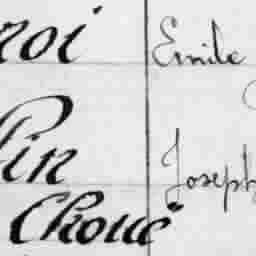 roi Emile
Pin Joseph
Choué